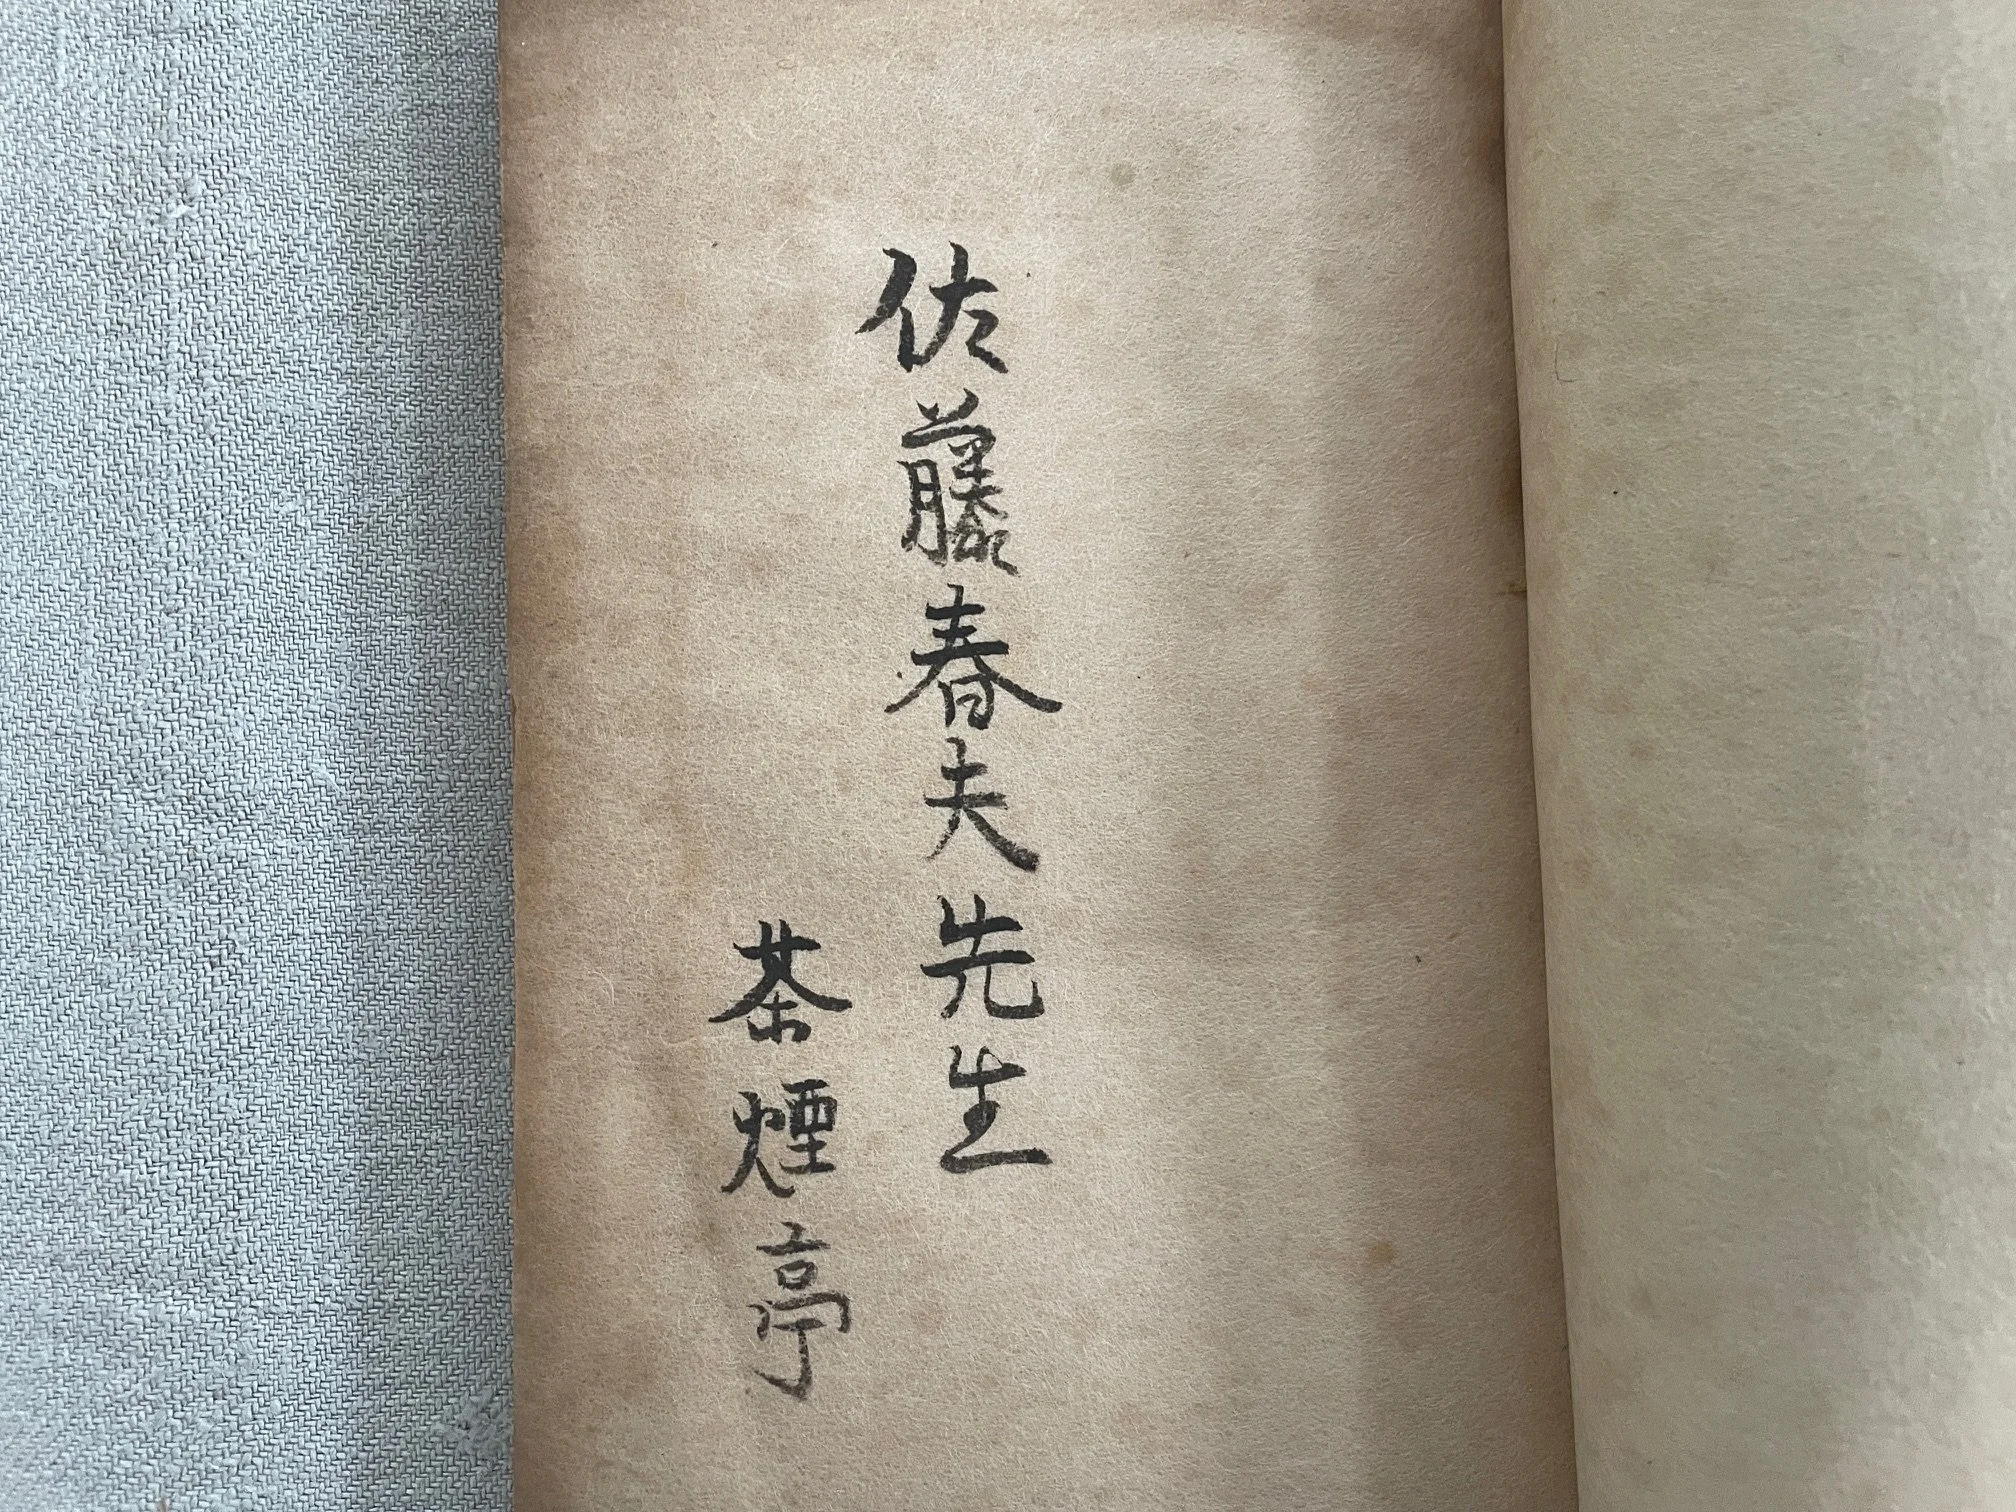 佐藤春夫先生
茶煙亭